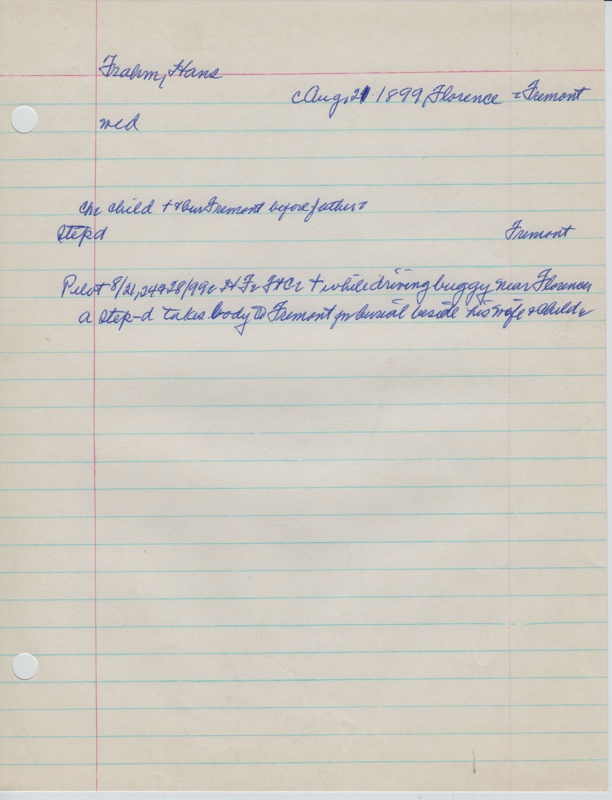 Frahm, Hans
cAug. 21 1899, Florence = Fremont
md
Ch: child + + bur Fremont before father =
Step d Fremont
Pilot 8/21, 24 & 28/99: H F: + while driving buggy near Florence;
a step-d takes body to Fremont for burial beside his wife & child.